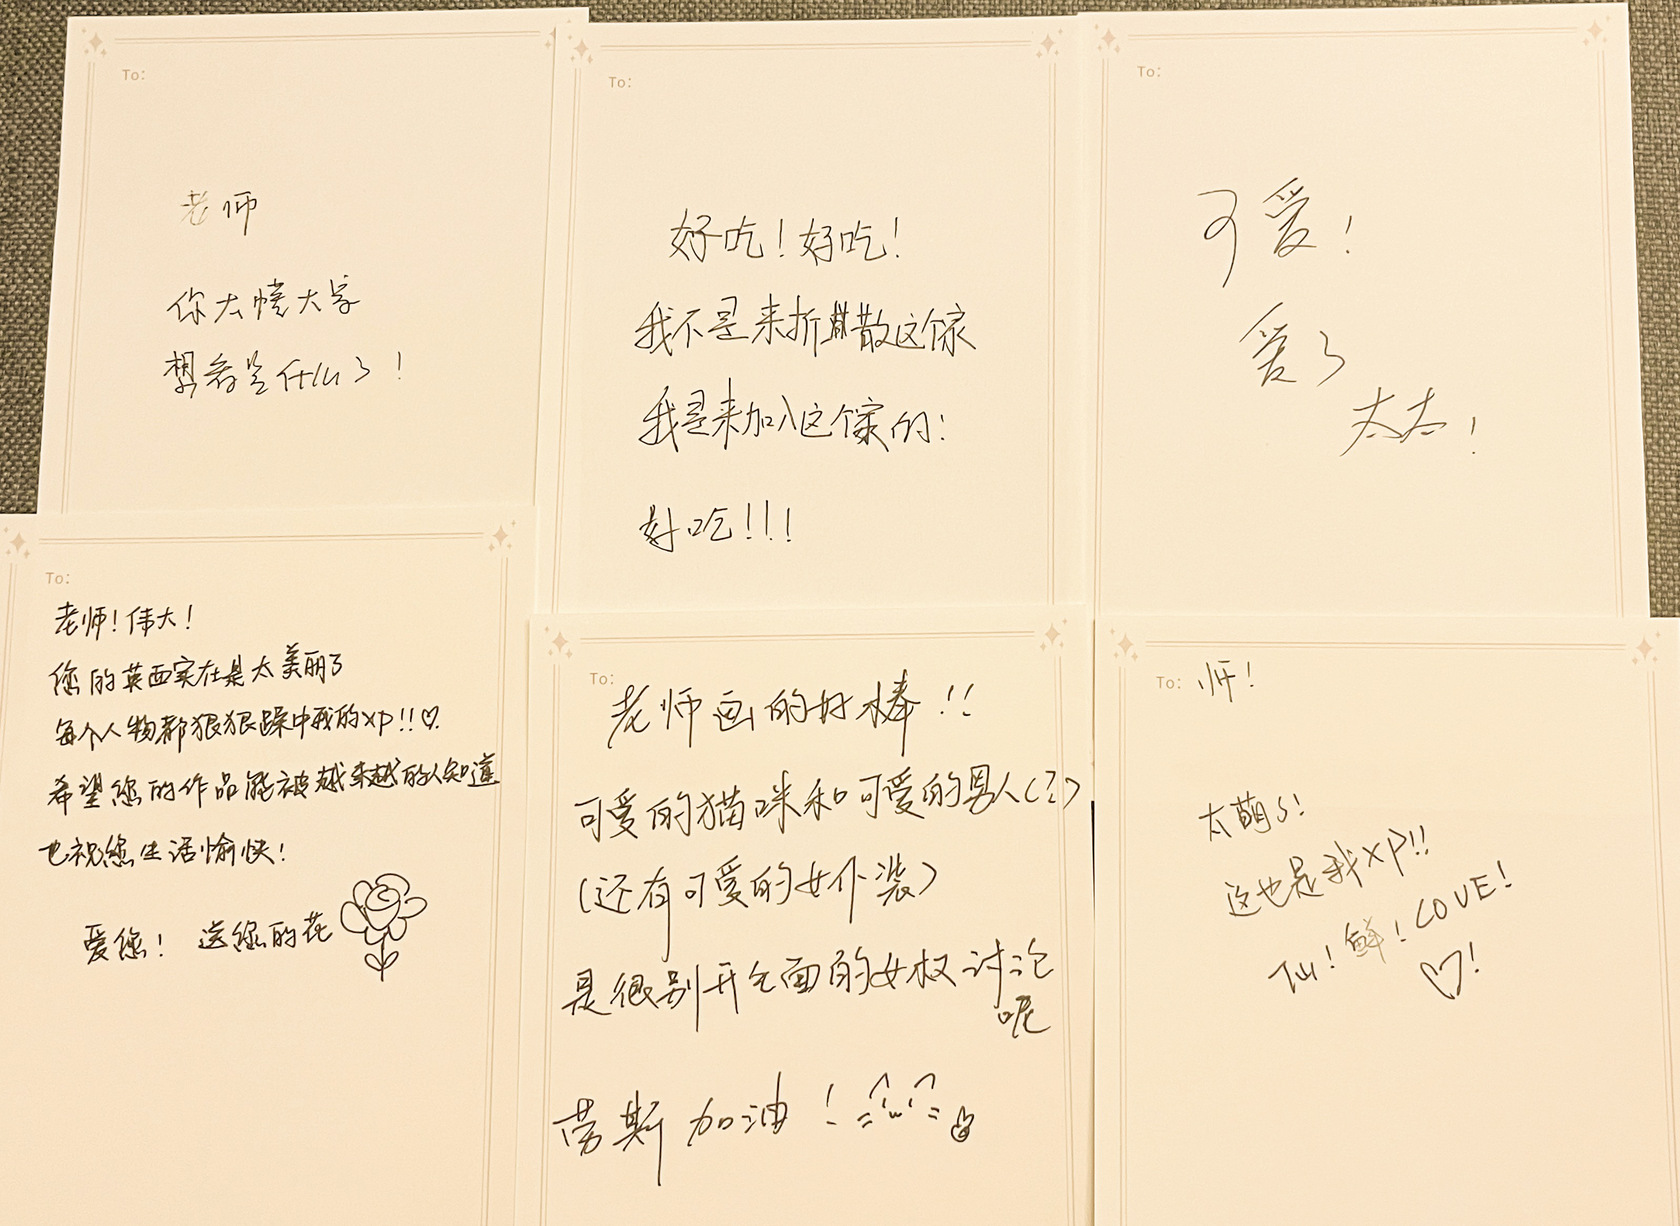 To:
老师
你太懂大家
想看是什么了!
To:
好吃!好吃!
我不是来拆散这个家
我是来加入这个家的!
好吃!!!
To:
可爱!
爱了
太太!
To:
老师!伟大!
您的英西实在是太美丽了
每个人物都狠狠踩中我的xp!!♡
希望您的作品能被越来越的人知道
也祝您生活愉快!
爱您! 送您的花
To:
老师画的好棒!!
可爱的猫咪和可爱的男人(?)
(还有可爱的女仆装)
是很别开生面的女权讨论
呢
劳斯 加油!
To: 师!
太萌了!
这也是我XP!!
上!鲜!LOVE!
♡!